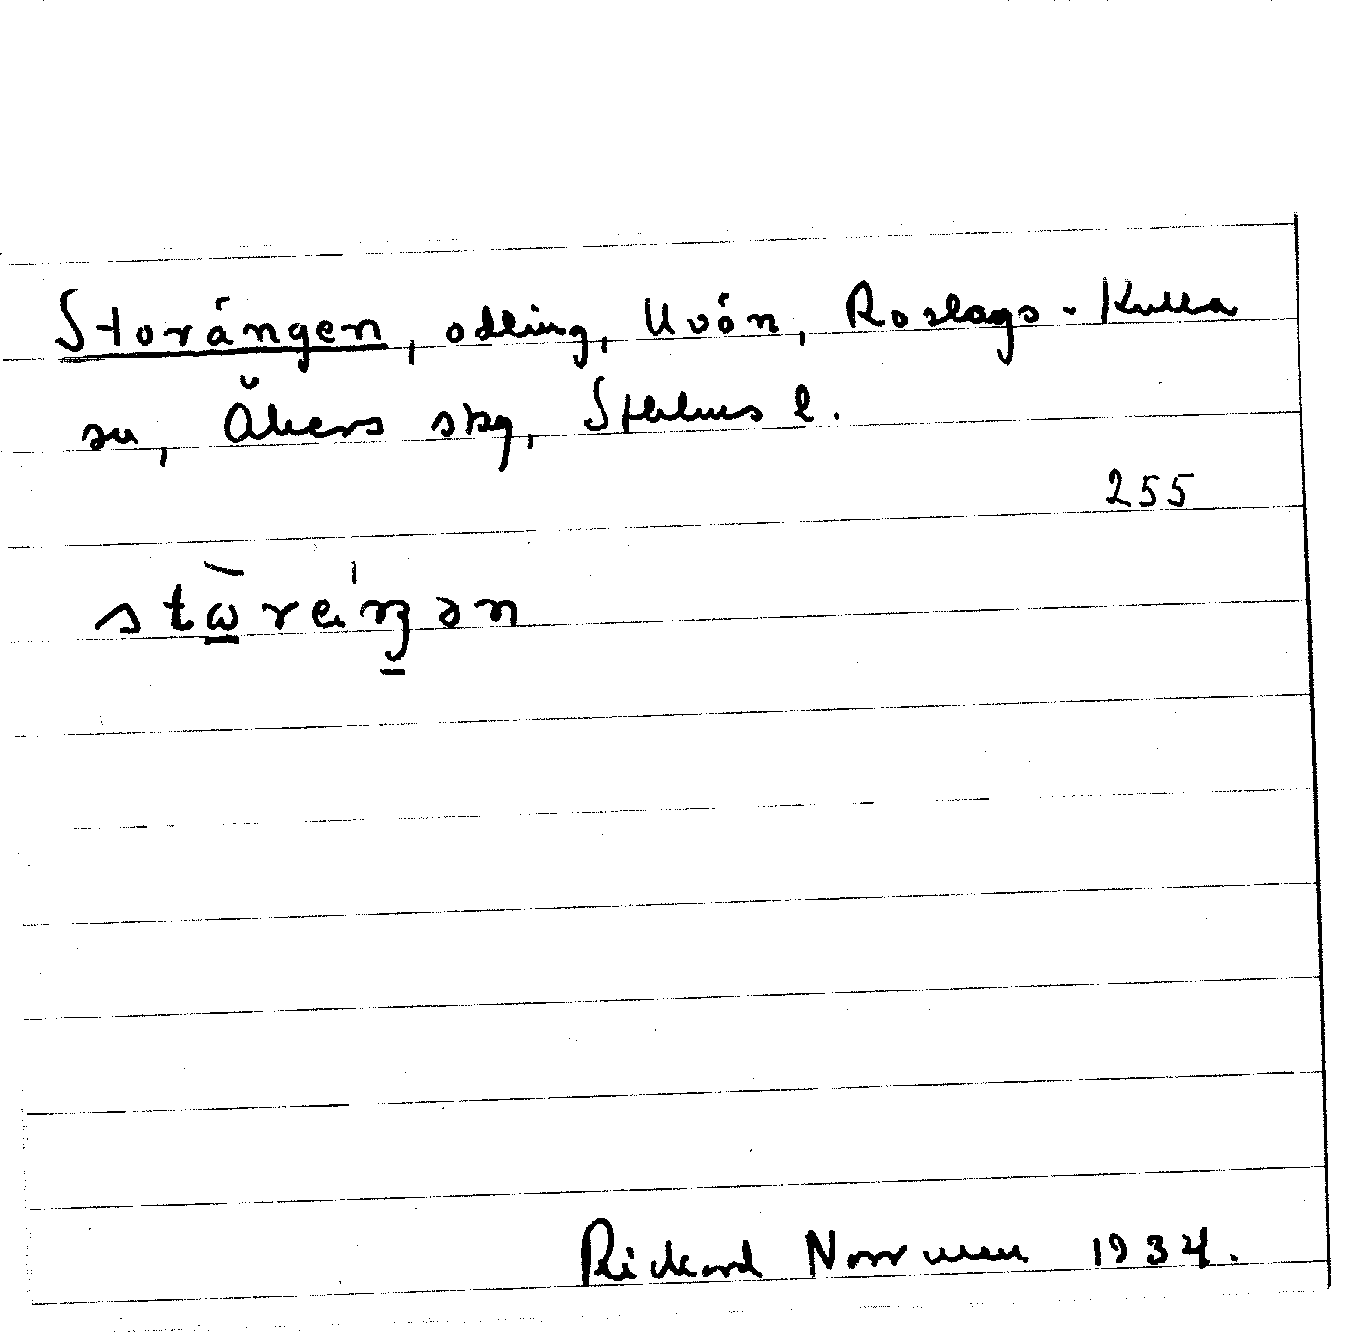 Storängen, odling, Uvön, Roslags-Kulla
sn, Åkers skg, Sthlms l.
255
Rickard Norrmen 1934.